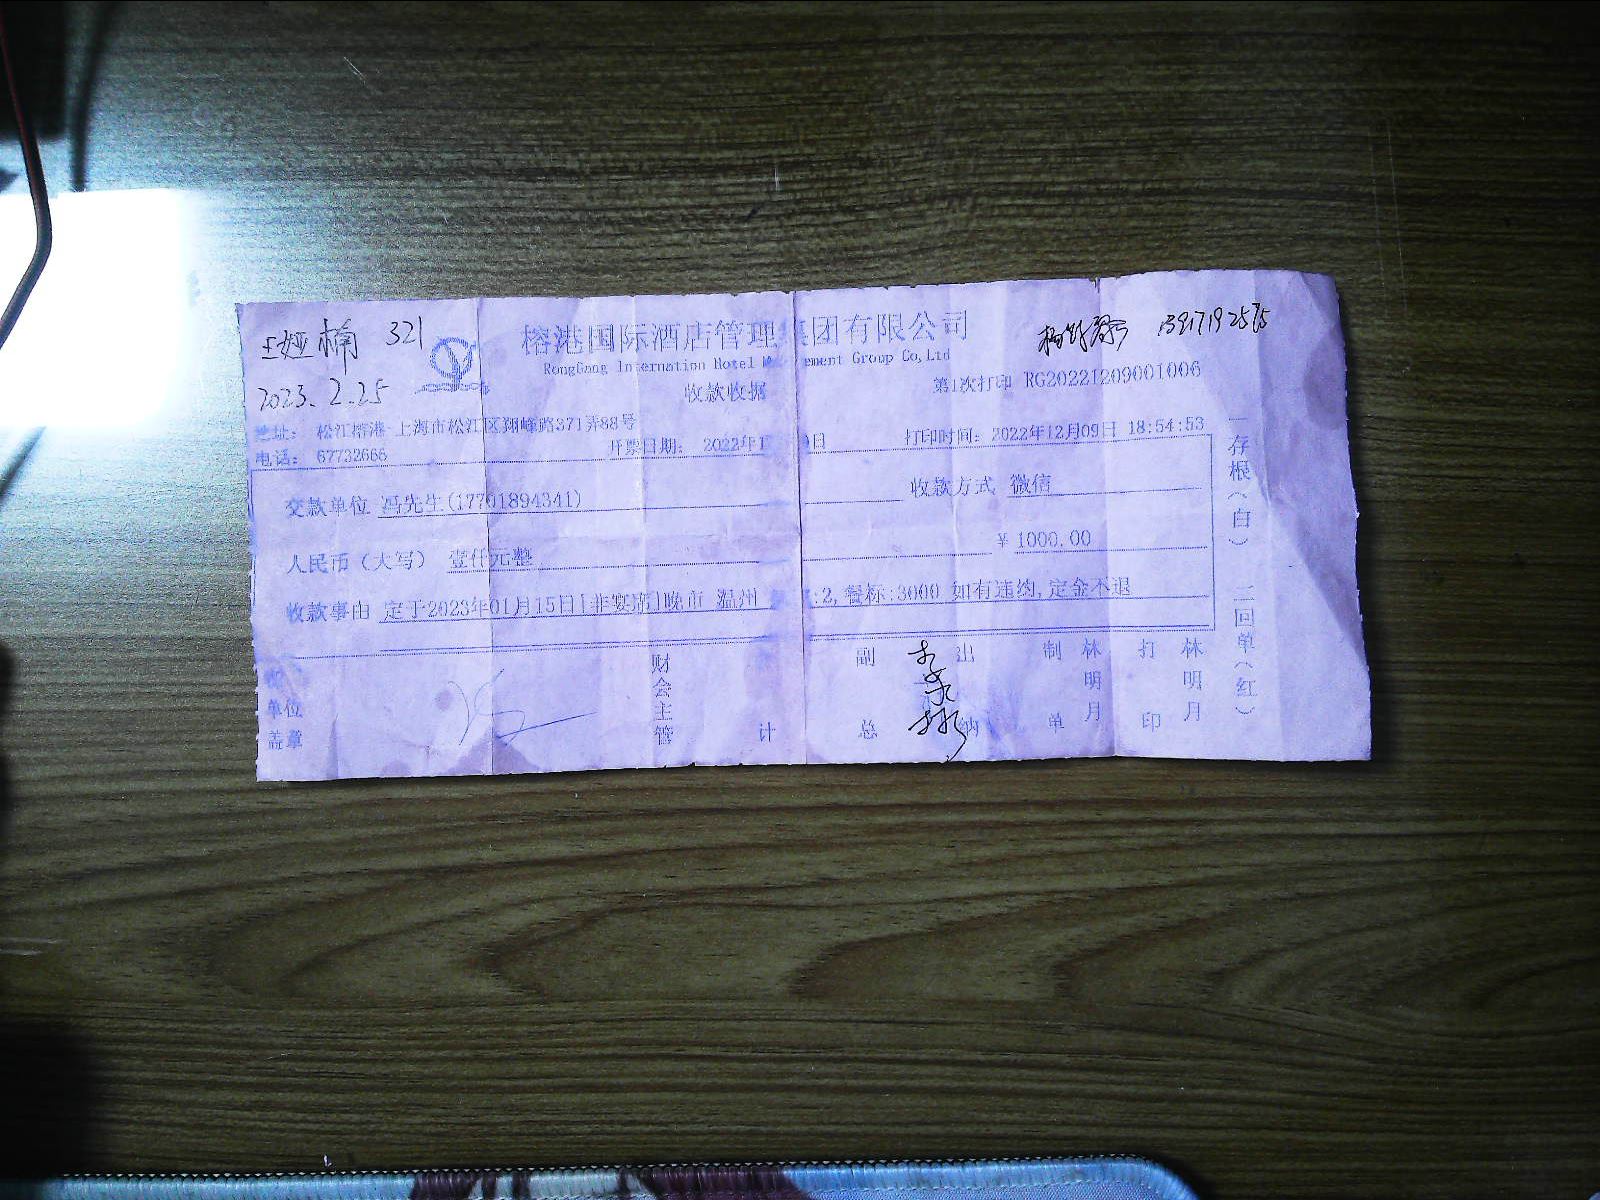 王娅楠 321
2023.2.25
榕港国际酒店管理集团有限公司
RongGang Internation Hotel M ement Group Co,Ltd
收款收据
第1次打印 RG20221209001006
地址: 松江榕港-上海市松江区翔峰路371弄88号
电话: 67732666
开票日期: 2022年1 日
打印时间: 2022年12月09日 18:54:53
交款单位 冯先生(17701894341)
收款方式 微信
人民币（大写） 壹仟元整
¥ 1000.00
收款事由 定于2023年01月15日[非宴席]晚市 温州 :2,餐标:3000 如有违约,定金不退
单位盖章
财会主管
计
副总
出纳
制单
林明月
打印
林明月
一存根（白） 二回单（红）